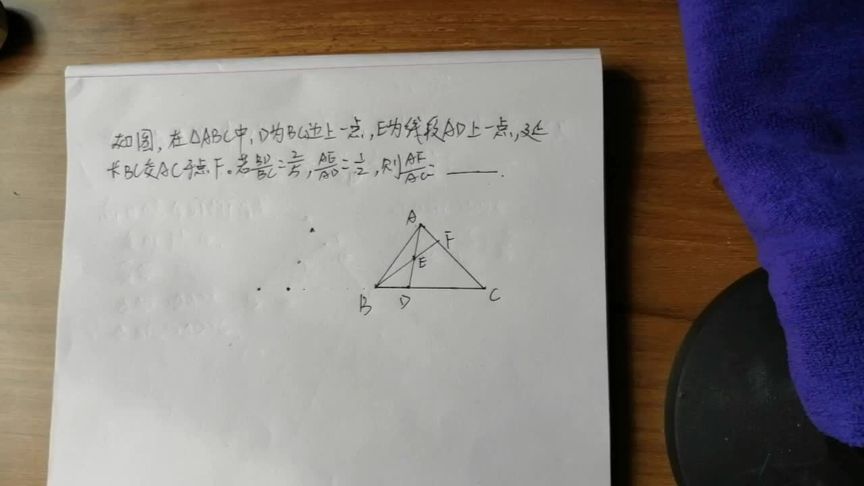 如图,在△ABC中,D为BC边上一点,E为线段AD上一点,延
长BC交AC于点F。若BD/BC=2/5,AE/AD=1/2,则AF/AC= ____.
A
F
E
B D C